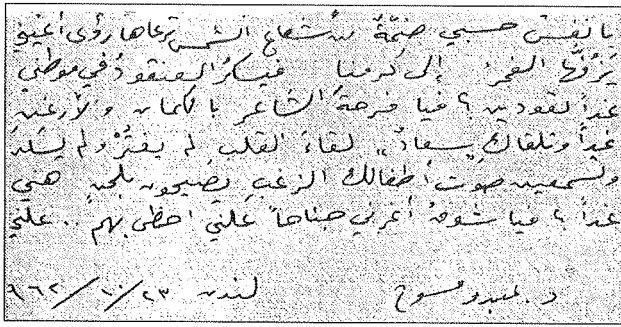 يا نفس حسبي ضمّةٌ من شعاع الشمس ترعاها رؤى أعيني
يَزُفّها الفجرُ إلى كرمنا فيسكرُ العنقودُ في موطني
غداً تعودين؟ فيا فرحةَ الشاعر بالكمان والأرغن
غداً وتلقاك "سعادٌ" لقاءَ القلب لم يفترْ ولم يسكن
وتسمعين صوت أطفالك الزغبِ يصيحون بلحنٍ هني
غداً؟ فيا شوقُ أعرني جناحاً علني احظى بهم.. علني
د. عبدو مسوح لندن ٢٣/١٠/٩٦٢